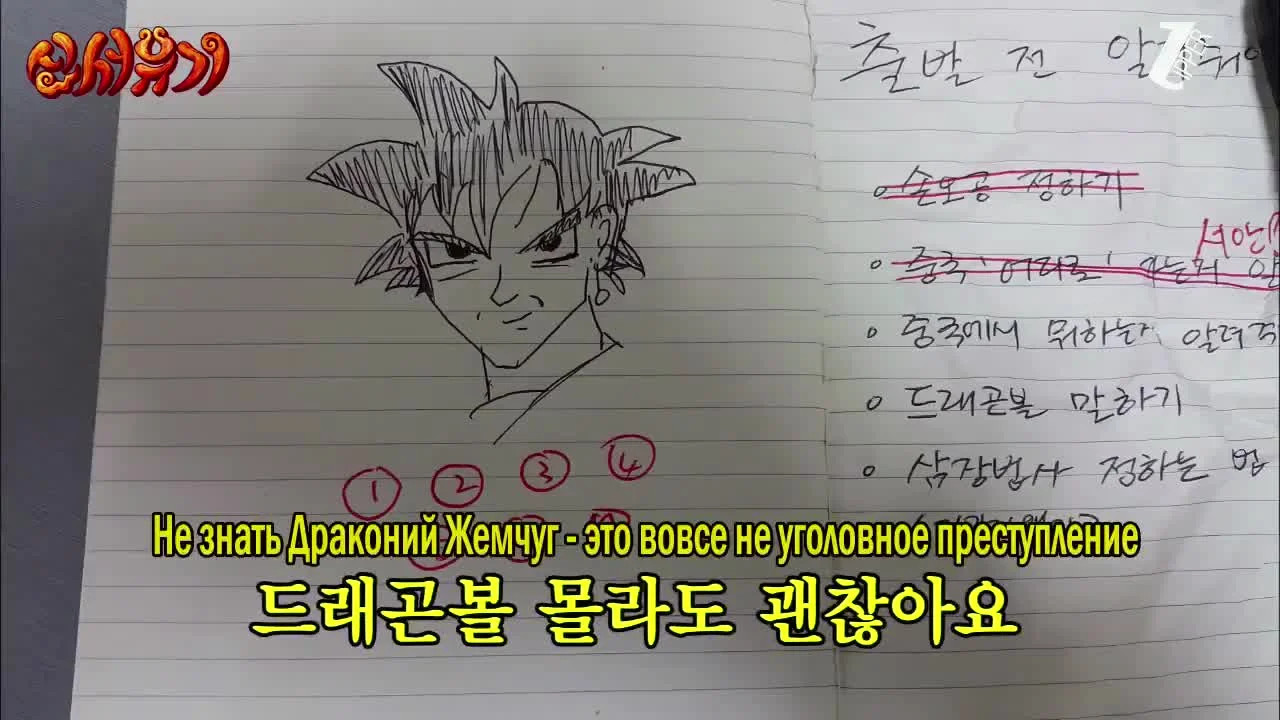 신서유기
출발 전 알
손오공 정하기
서안
중국 '어디로' 가는지
중국에서 뭐하는지 알려주
드래곤볼 말하기
삼장법사 정하는 법
① ② ③ ④
Не знать Драконий Жемчуг - это вовсе не уголовное преступление
드래곤볼 몰라도 괜찮아요